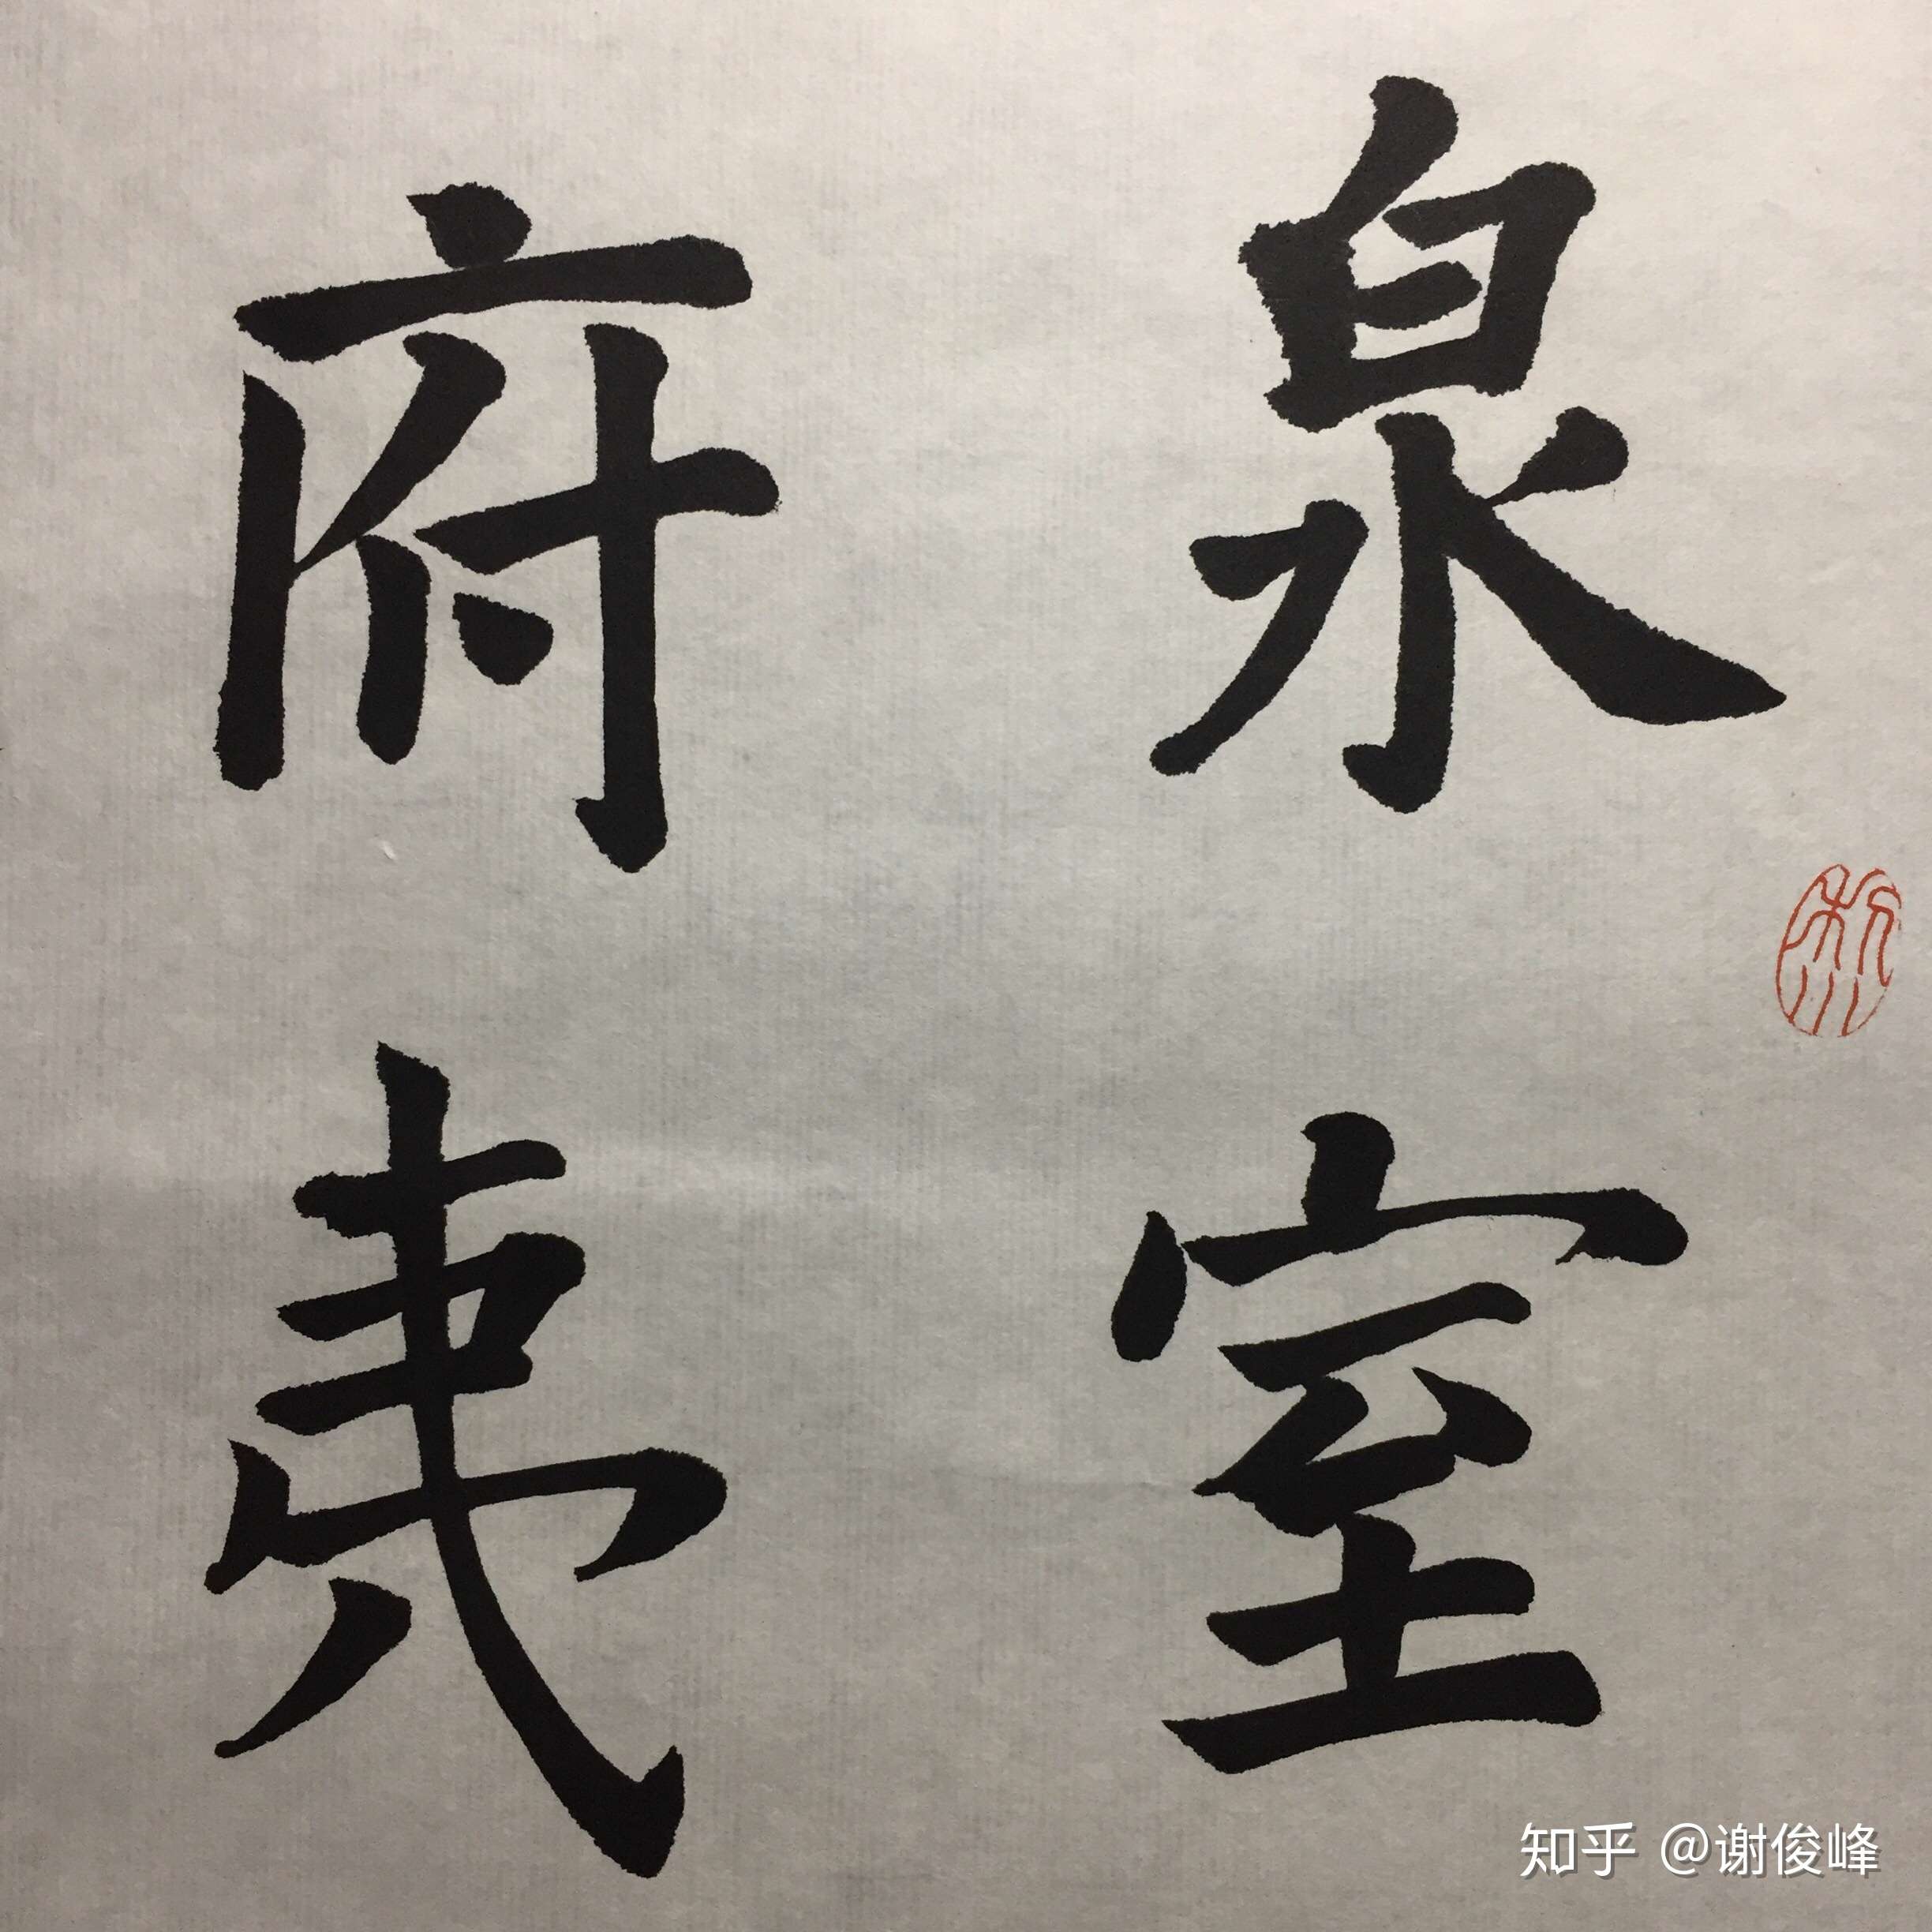 泉室
府
知乎 @谢俊峰